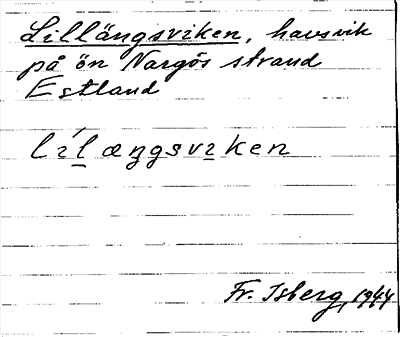 Lillängsviken, havsvik
på ön Nargös strand
Estland
lílæŋgsviken
Fr. Isberg, 1944